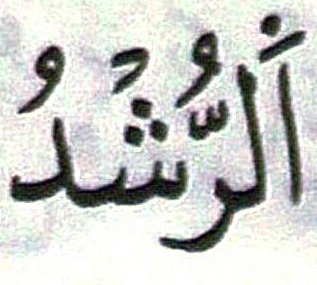 اَلرُّشْدُ